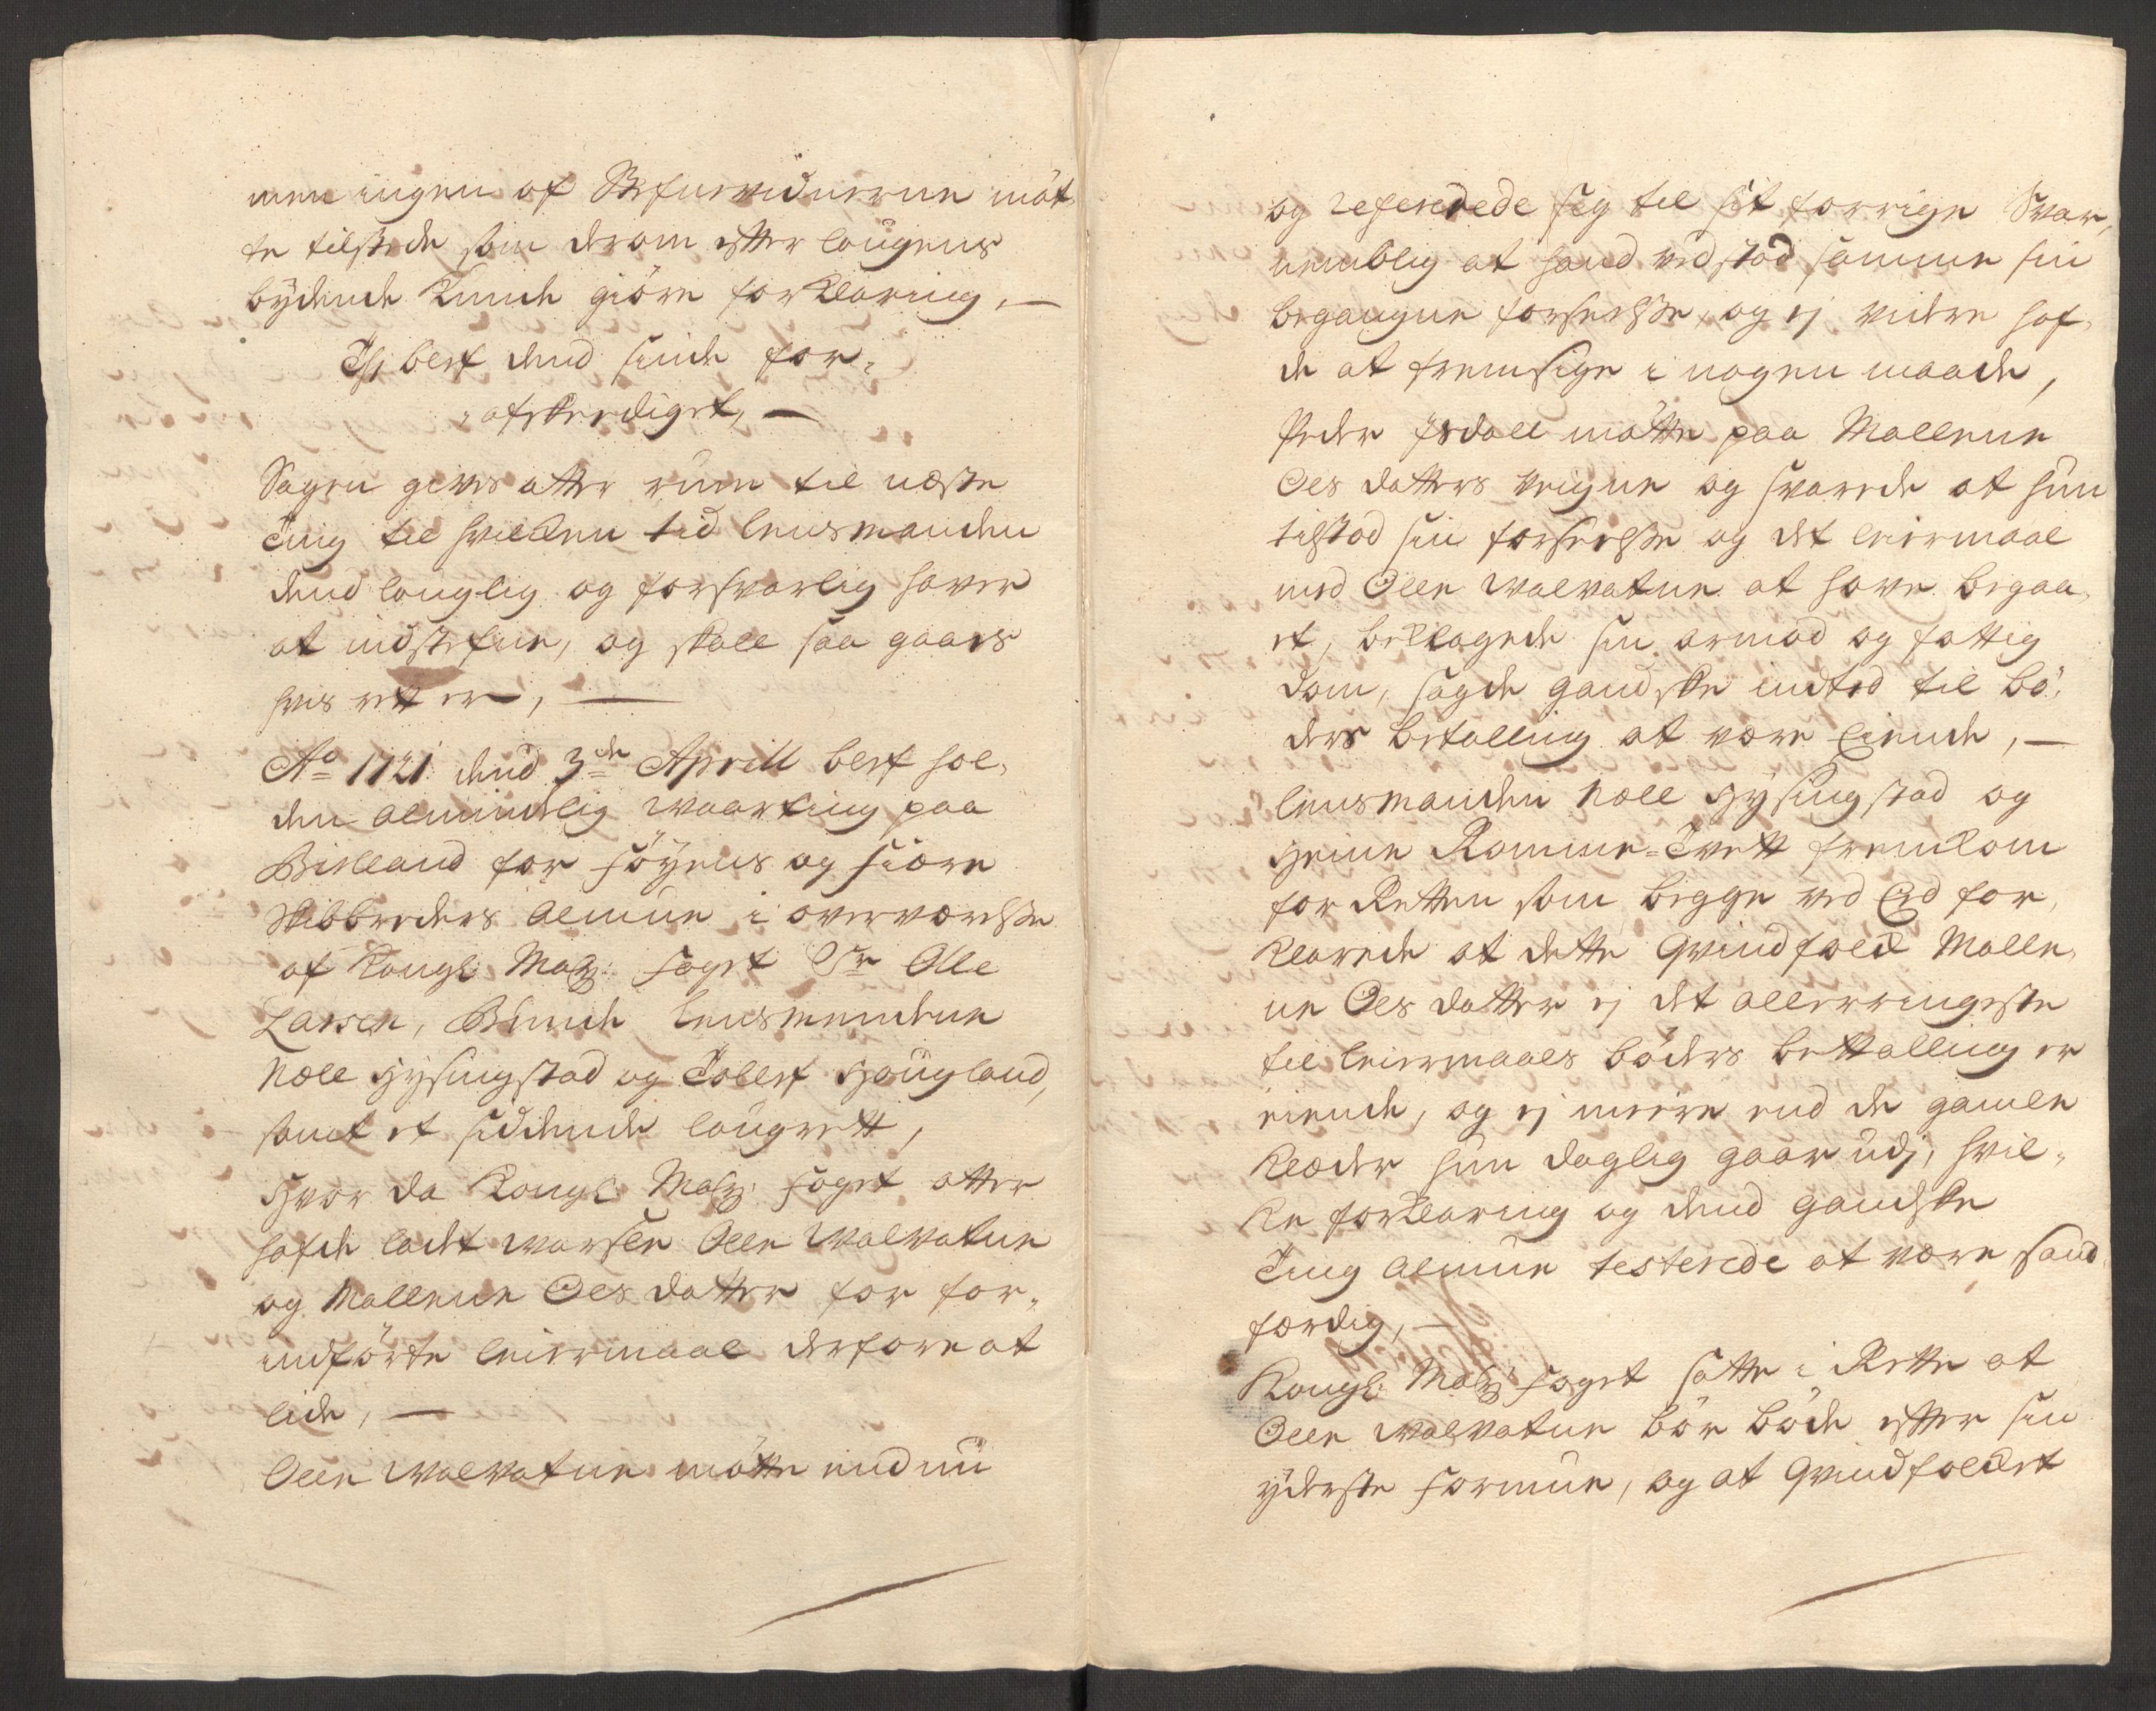 men ingen af Stefnevidnerne möt-
te tilstede som derom efter lougens
bydende kunde giöre forklaring, —
Thj blef dend sinde for-
afskeediget, —
Sagen gives atter rum til neste
Ting til hvilken tid lensmanden
dend louglig og forsvarlig haver
at indstefne, og skall saa gaaes
hvis rett er, —
Ao 1721 dend 3de Aprill blef hol-
den almindelig Waarting paa
Birkland for föyens og fiære
Skibbreders Almue i overværelse
af Kongl: Mayts: foget Sr Olle
Larsen, Bunde lensmendene
Noll Hysingstad og Tollef Hougland,
samt et siddende lougrett,
Hvor da Kongl: Mayts: foget atter
hafde ladet warsle Olle Walvatne
og Mallene Oelsdatter for for-
indförte leiermaal derfore at
lide, —
Olle Walvatne mötte end nu
og refererede sig til sit forrige Svar,
nemblig at hand vedstod samme sin
begangne forseelse, og ej videre haf-
de at fremsige i nogen maade,
Peder Ysdall mötte paa Mallene
Oelsdatters veigne og svarede at hun
tilstod sin forseelse og det leiermaal
med Olle Walvatne at have begaa-
et, beklagede sin armod og fattig
dom, sagde gandske indted til bö-
ders betalling at være Eiende, —
lensmanden Noll Hysingstad og
Heine Romme-Tvett fremkom
for Retten som begge ved Eed for-
klarede at dette Qvindfolk Malle-
ne Oelsdatter ej det allerringeste
til leiermaals böders bettalling er
eiende, og ej meere end de gamle
klæder hun daglig gaar udj, hvil-
ke forklaring og dend gandske
Ting Almue testerede at være sand
færdig, —
Kongl: Mayts: foget satte i Rette at
Olle Walvatne bör böde efter sin
yderste formue, og at Qvindfolket